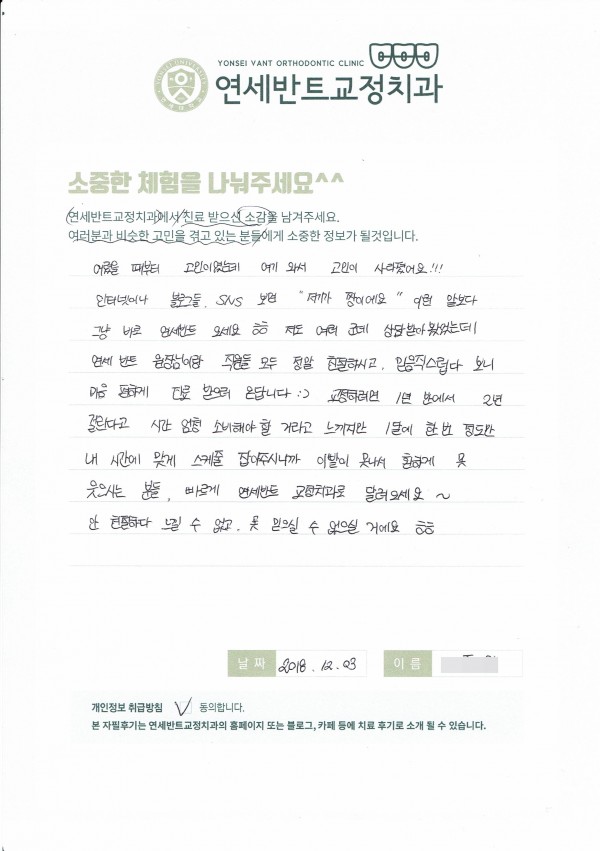 YONSEI VANT ORTHODONTIC CLINIC
연세반트교정치과
소중한 체험을 나눠주세요^^
연세반트교정치과에서 진료 받으신 소감을 남겨주세요.
여러분과 비슷한 고민을 겪고 있는 분들에게 소중한 정보가 될것입니다.
어렸을 때부터 고민이었는데 여기 와서 고민이 사라졌어요!!!
인터넷이나 블로그들, SNS 보면 "저기가 짱이에요" 이런 말보다
그냥 바로 연세반트 오세요 ㅎㅎ 저도 여러 군데 상담받아 봤었는데
연세 반트 원장님이랑 직원들 모두 정말 친절하시고, 믿음직스럽다 보니
마음 편하게 진료 받으러 온답니다 :-) 교정하려면 1년 반에서 2년
걸린다고 시간 엄청 소비해야 할 거라고 느끼지만 1달에 한 번 정도만
내 시간에 맞게 스케줄 잡아주시니까 이빨이 못나서 환하게 못
웃으시는 분들, 빠르게 연세반트 교정치과로 달려오세요 ~
안 친절하다 느낄 수 없고, 못 믿으실 수 없으실 거에요 ㅎㅎ
날 짜 2018. 12. 03 이 름
개인정보 취급방침 ✓ 동의합니다.
본 자필후기는 연세반트교정치과의 홈페이지 또는 블로그, 카페 등에 치료 후기로 소개 될 수 있습니다.